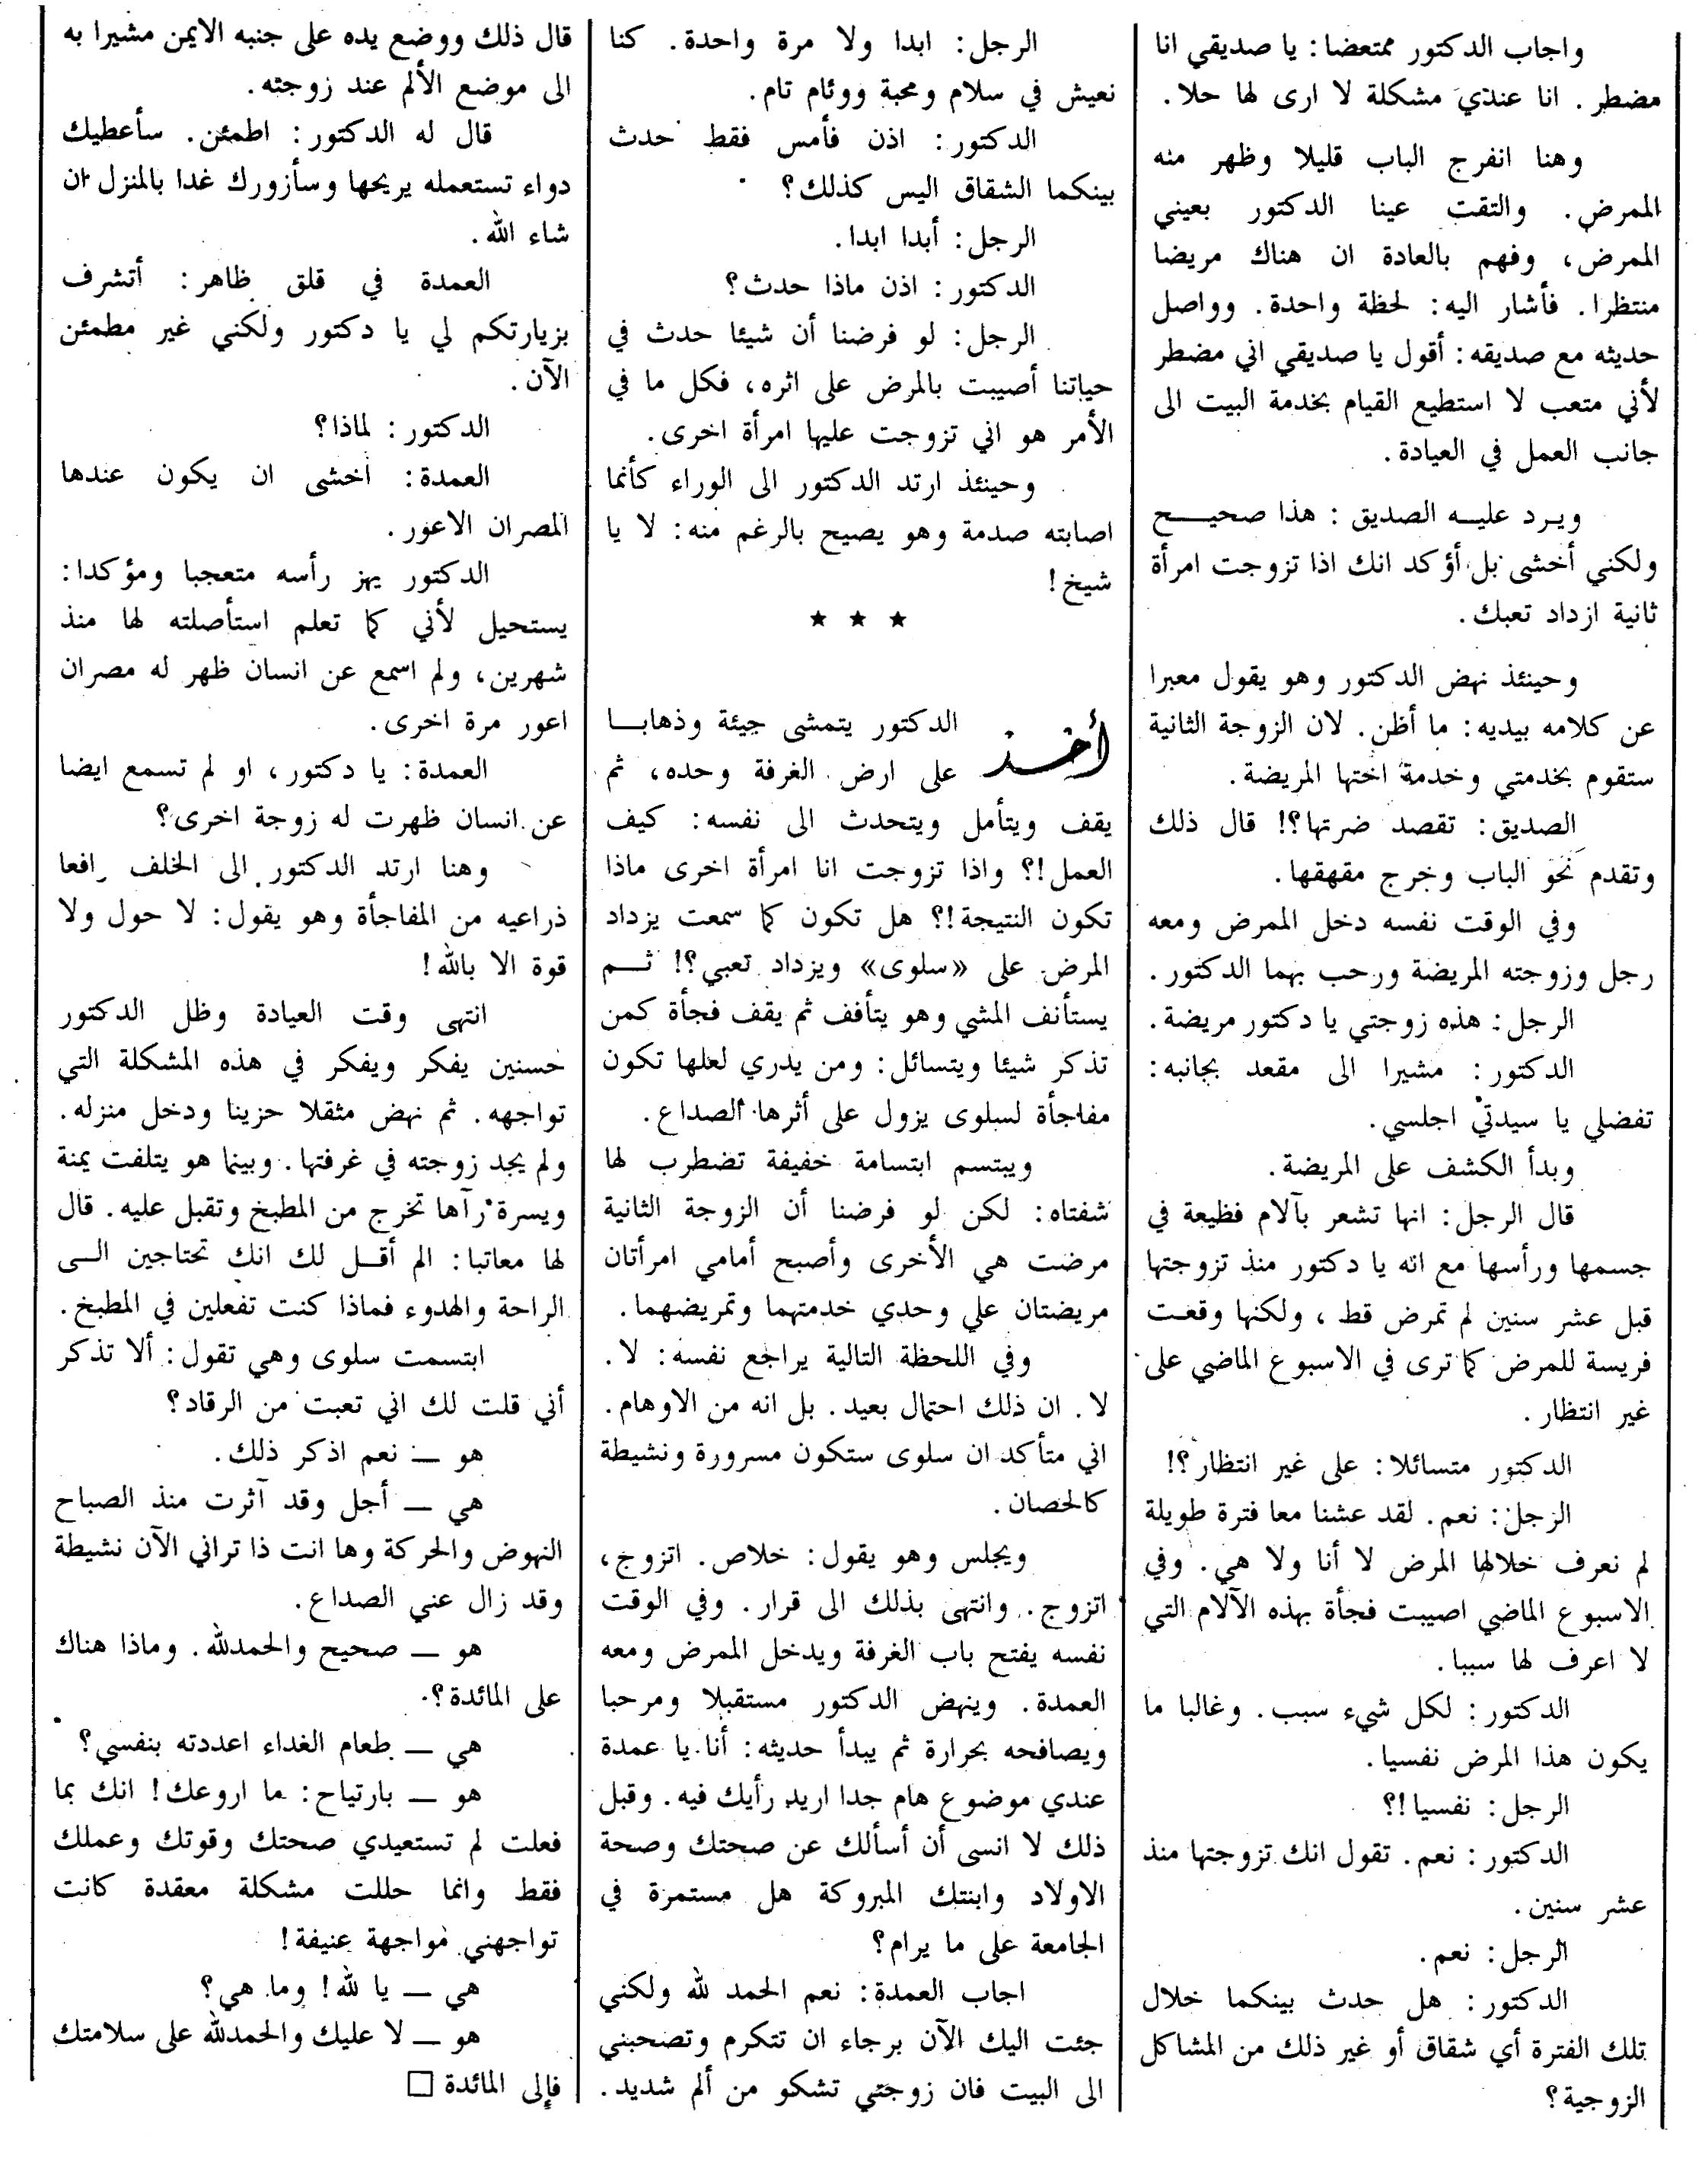 واجاب الدكتور ممتعضا: يا صديقي انا
مضطر. انا عندي مشكلة لا ارى لها حلا.
وهنا انفرج الباب قليلا وظهر منه
الممرض. والتقت عينا الدكتور بعيني
الممرض، وفهم بالعادة ان هناك مريضا
منتظرا. فأشار اليه: لحظة واحدة. وواصل
حديثه مع صديقه: أقول يا صديقي اني مضطر
لأني متعب لا استطيع القيام بخدمة البيت الى
جانب العمل في العيادة.
ويرد عليه الصديق: هذا صحيح
ولكني أخشى بل أؤكد انك اذا تزوجت امرأة
ثانية ازداد تعبك.
وحينئذ نهض الدكتور وهو يقول معبرا
عن كلامه بيديه: ما أظن. لان الزوجة الثانية
ستقوم بخدمتي وخدمة اختها المريضة.
الصديق: تقصد ضرتها؟! قال ذلك
وتقدم نحو الباب وخرج مقهقها.
وفي الوقت نفسه دخل الممرض ومعه
رجل وزوجته المريضة ورحب بهما الدكتور.
الرجل: هذه زوجتي يا دكتور مريضة.
الدكتور: مشيرا الى مقعد بجانبه:
تفضلي يا سيدتي اجلسي.
وبدأ الكشف على المريضة.
قال الرجل: انها تشعر بآلام فظيعة في
جسمها ورأسها مع انه يا دكتور منذ تزوجتها
قبل عشر سنين لم تمرض قط، ولكنها وقعت
فريسة للمرض كما ترى في الاسبوع الماضي على
غير انتظار.
الدكتور متسائلا: على غير انتظار؟!
الرجل: نعم. لقد عشنا معا فترة طويلة
لم نعرف خلالها المرض لا أنا ولا هي. وفي
الاسبوع الماضي اصيبت فجأة بهذه الآلام التي
لا اعرف لها سببا.
الدكتور: لكل شيء سبب. وغالبا ما
يكون هذا المرض نفسيا.
الرجل: نفسيا!؟
الدكتور: نعم. تقول انك تزوجتها منذ
عشر سنين.
الرجل: نعم.
الدكتور: هل حدث بينكما خلال
تلك الفترة أي شقاق أو غير ذلك من المشاكل
الزوجية؟
الرجل: ابدا ولا مرة واحدة. كنا
نعيش في سلام ومحبة ووئام تام.
الدكتور: اذن فأمس فقط حدث
بينكما الشقاق اليس كذلك؟
الرجل: أبدا ابدا.
الدكتور: اذن ماذا حدث؟
الرجل: لو فرضنا أن شيئا حدث في
حياتنا أصيبت بالمرض على اثره، فكل ما في
الأمر هو اني تزوجت عليها امرأة اخرى.
وحينئذ ارتد الدكتور الى الوراء كأنما
اصابته صدمة وهو يصيح بالرغم منه: لا يا
شيخ!
★ ★ ★
أخذ الدكتور يتمشى جيئة وذهابا
على ارض الغرفة وحده، ثم
يقف ويتأمل ويتحدث الى نفسه: كيف
العمل!؟ واذا تزوجت انا امرأة اخرى ماذا
تكون النتيجة!؟ هل تكون كما سمعت يزداد
المرض على «سلوى» ويزداد تعبي؟! ثم
يستأنف المشي وهو يتأفف ثم يقف فجأة كمن
تذكر شيئا ويتسائل: ومن يدري لعلها تكون
مفاجأة لسلوى يزول على أثرها الصداع.
ويبتسم ابتسامة خفيفة تضطرب لها
شفتاه: لكن لو فرضنا أن الزوجة الثانية
مرضت هي الأخرى وأصبح أمامي امرأتان
مريضتان علي وحدي خدمتهما وتمريضهما.
وفي اللحظة التالية يراجع نفسه: لا.
لا. ان ذلك احتمال بعيد. بل انه من الاوهام.
اني متأكد ان سلوى ستكون مسرورة ونشيطة
كالحصان.
ويجلس وهو يقول: خلاص. اتزوج،
اتزوج. وانتهى بذلك الى قرار. وفي الوقت
نفسه يفتح باب الغرفة ويدخل الممرض ومعه
العمدة. وينهض الدكتور مستقبلا ومرحبا
ويصافحه بحرارة ثم يبدأ حديثه: أنا يا عمدة
عندي موضوع هام جدا اريد رأيك فيه. وقبل
ذلك لا انسى أن أسألك عن صحتك وصحة
الاولاد وابنتك المبروكة هل مستمرة في
الجامعة على ما يرام؟
اجاب العمدة: نعم الحمد لله ولكني
جئت اليك الآن برجاء ان تتكرم وتصحبني
الى البيت فان زوجتي تشكو من ألم شديد.
قال ذلك ووضع يده على جنبه الايمن مشيرا به
الى موضع الألم عند زوجته.
قال له الدكتور: اطمئن. سأعطيك
دواء تستعمله يريحها وسأزورك غدا بالمنزل ان
شاء الله.
العمدة في قلق ظاهر: أتشرف
بزيارتكم لي يا دكتور ولكني غير مطمئن
الآن.
الدكتور: لماذا؟
العمدة: اخشى ان يكون عندها
المصران الاعور.
الدكتور يهز رأسه متعجبا ومؤكدا:
يستحيل لأني كما تعلم استأصلته لها منذ
شهرين، ولم اسمع عن انسان ظهر له مصران
اعور مرة اخرى.
العمدة: يا دكتور، او لم تسمع ايضا
عن انسان ظهرت له زوجة اخرى؟
وهنا ارتد الدكتور الى الخلف رافعا
ذراعيه من المفاجأة وهو يقول: لا حول ولا
قوة الا بالله!
انتهى وقت العيادة وظل الدكتور
حسنين يفكر ويفكر في هذه المشكلة التي
تواجهه. ثم نهض مثقلا حزينا ودخل منزله.
ولم يجد زوجته في غرفتها. وبينما هو يتلفت يمنة
ويسرة رآها تخرج من المطبخ وتقبل عليه. قال
لها معاتبا: الم أقل لك انك تحتاجين الى
الراحة والهدوء فماذا كنت تفعلين في المطبخ.
ابتسمت سلوى وهي تقول: ألا تذكر
أني قلت لك اني تعبت من الرقاد؟
هو ــ نعم اذكر ذلك.
هي ــ أجل وقد آثرت منذ الصباح
النهوض والحركة وها انت ذا تراني الآن نشيطة
وقد زال عني الصداع.
هو ــ صحيح والحمدلله. وماذا هناك
على المائدة؟
هي ــ طعام الغداء اعددته بنفسي؟
هو ــ بارتياح: ما اروعك! انك بما
فعلت لم تستعيدي صحتك وقوتك وعملك
فقط وانما حللت مشكلة معقدة كانت
تواجهني مواجهة عنيفة!
هي ــ يا لله! وما هي؟
هو ــ لا عليك والحمدلله على سلامتك
فإلى المائدة □